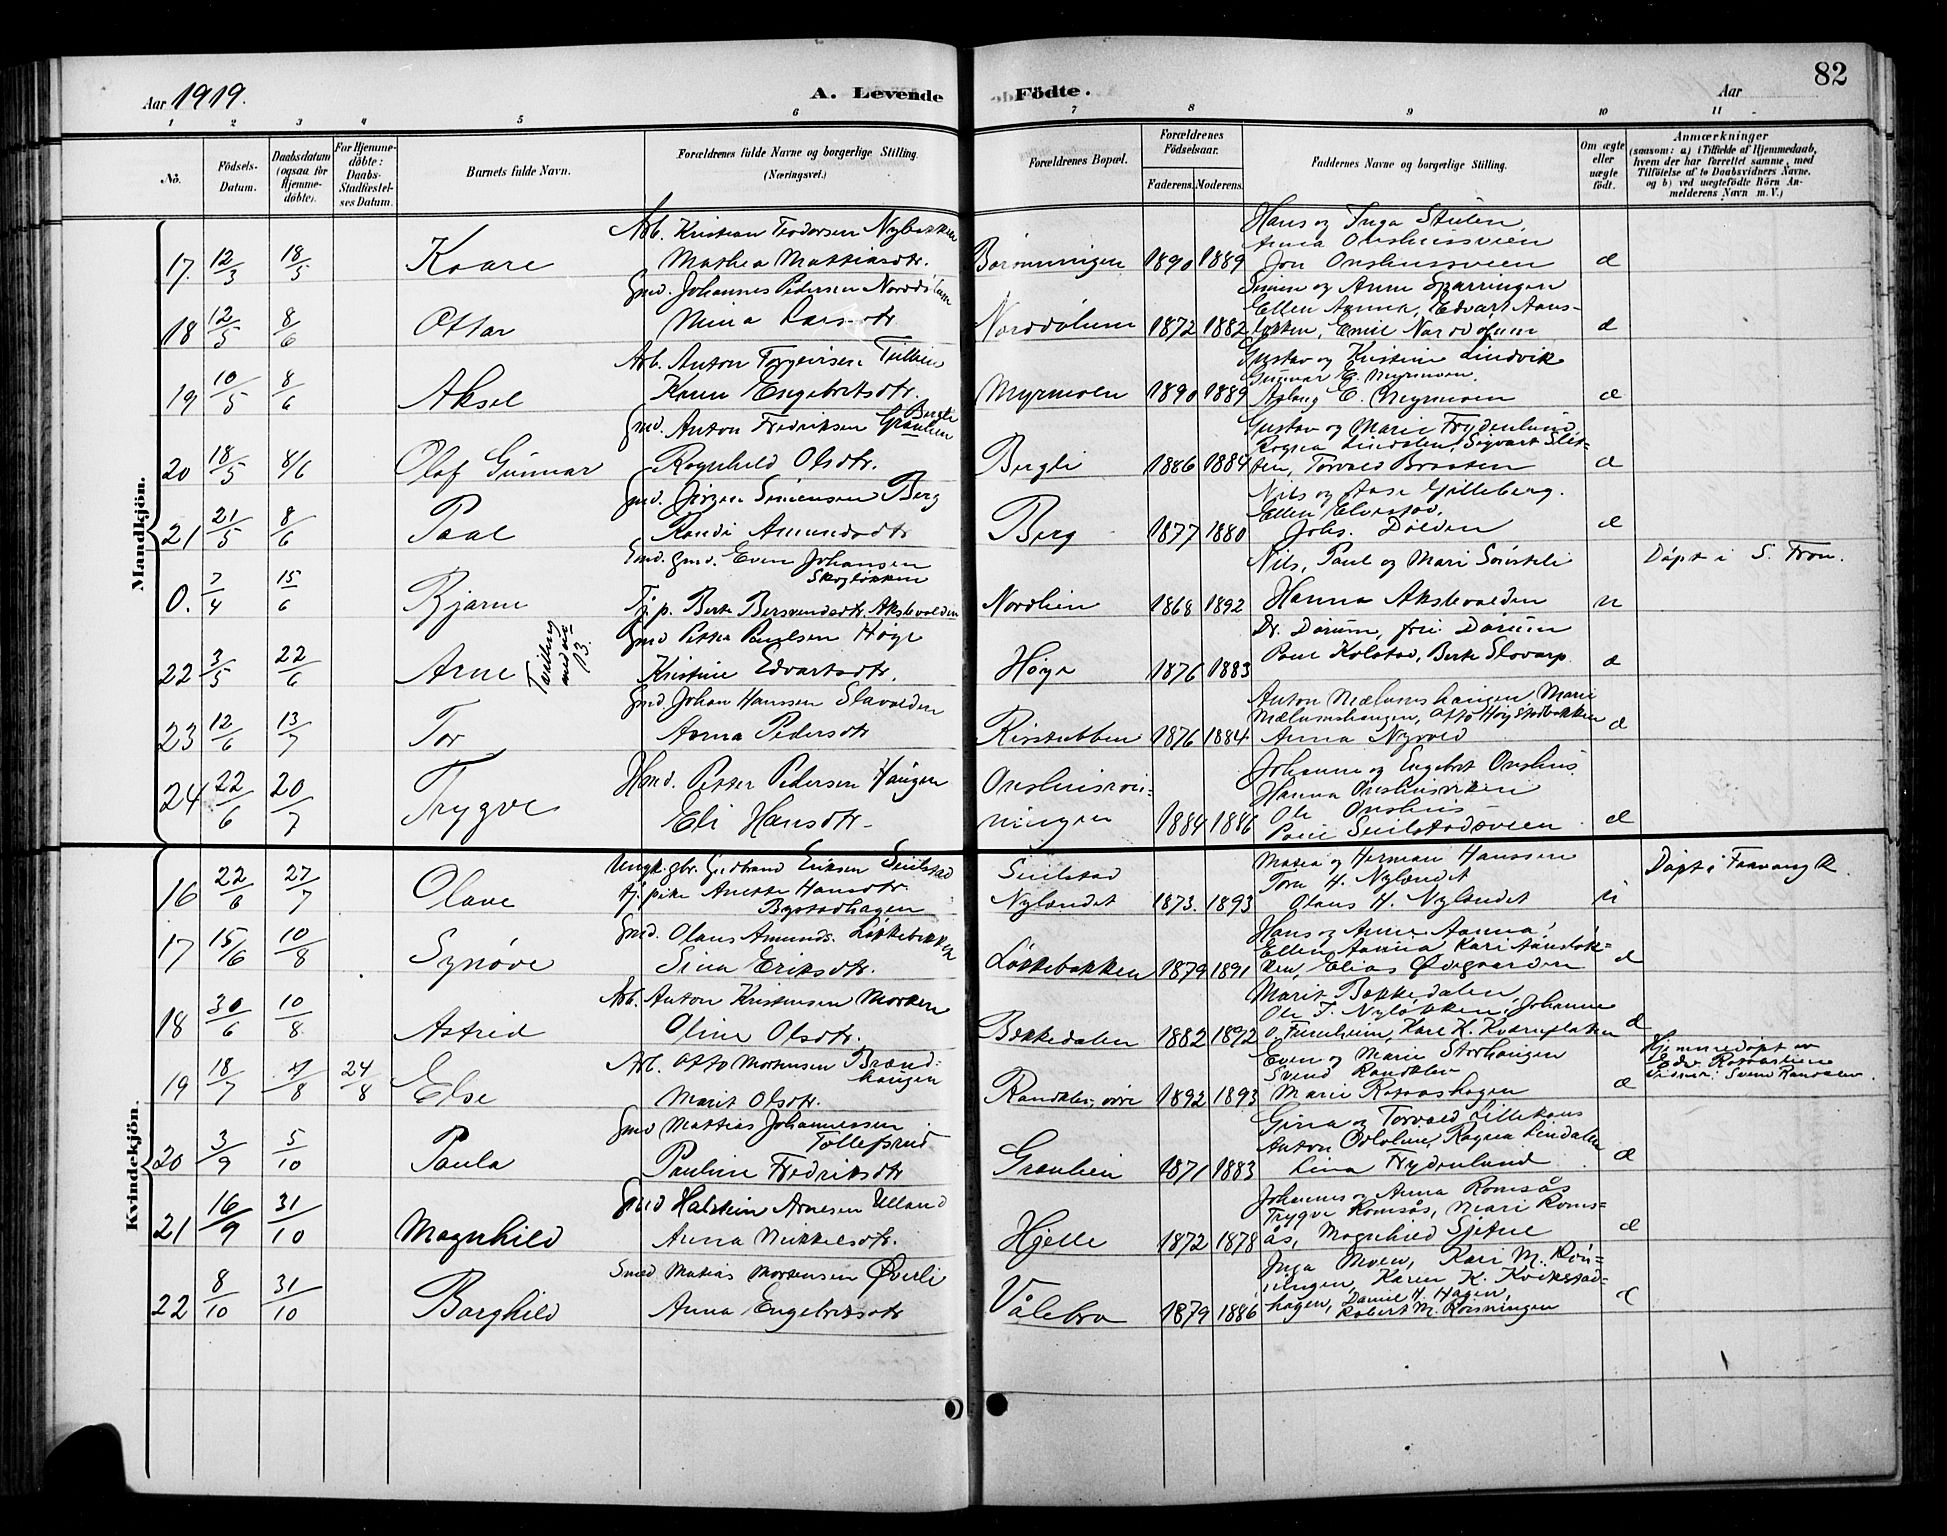 Aar 1919.
A. Levende
Födte.
Aar
82
1 2 3 4 5 6 7 8 9 10 11
No.
Födsels-Datum.
Daabsdatum (ogsaa for Hjemmedöbte).
For Hjemmedöbte: Daabs-Stadfestelses Datum.
Barnets fulde Navn.
Forældrenes fulde Navne og borgerlige Stilling. (Næringsvei.)
Forældrenes Bopæl.
Forældrenes Födselsaar.
Faderens. Moderens.
Faddernes Navne og borgerlige Stilling.
Om ægte eller uægte födt.
Anmærkninger
(saasom: a) i Tilfælde af Hjemmedaab, hvem der har forrettet samme, med Tilföielse af to Daabsvidners Navne, og b) ved uægtefödte Börn Anmelderens Navn m. V.)
Mandkjön.
17. 12/3 18/5 Kaare
Arb. Kristian Teodorsen Nybakken
Mathea Mattiasdtr.
1890 1889
Hans og Inga Stulen,
Anna Onshussveen
Jon Onshussveen
18 12/5 8/6 Ottar
Gmd. Johannes Pedersen Norddölum
Mina Larsdtr.
Norddölum 1872 1882
Simen og Anne Sparringen
Ellen Aanna, Edvart Aans-
løkken, Emil Norddølum
19 10/5 8/6 Aksel
Arb. Anton Torgeirsen
Karen Engebretsdtr.
Myrmoen 1890 1889
Gustav og Kristine Lindvik
Gunnar E. Myrmoen.
Aslaug E. Myrmoen
20 18/5 8/6 Olaf Gunnar
Gmd. Anton Fredriksen Graulien Bergli
Ragnhild Olsdtr.
Bergli 1886 1884
Gustav og Marie Frydenlund
Ragna Lindalen, Sigvart Slet-
ten, Torvald Braaten
21 21/5 8/6 Paal
Gmd. Jörgen Simensen Berg
Randi Amundsdtr
Berg 1877 1880
Nils og Aase Gilleberg.
Ellen Elvestad,
Johs. Dølden
0. 7/4 15/6 Bjarne
Gmd. Even Johansen
Skogløkken
Tj. p. Berte Bersvendsdtr. Akslevolden
Nordlien 1868 1892
Nils, Paul og Mari Sörstili
Hanna Akslevolden
u
Döpt i S. Fron.
22 3/5 22/6 Arne
Tvilling med no 13.
Gmd Petter Paulsen Höge
Kristine Edvartsdtr.
1876 1883
Dr. Dorum, fru Dorum
Paul Kolstad, Berte Slovarp
23 12/6 13/7 Tor
Gmd. Johan Hanssen Slavolden
Anna Pedersdtr
Risstubben 1876 1884
Anton Mælumshaugen, Marie
Mælumshaugen, Otto Høystadbakken
Anna Nyvold
24 22/6 20/7 Trygve
Hmd. Petter Pedersen Haugen
Eli Hansdtr.
1884 1886
Johanne og Engebret Onshus
Hanna Onshusviken
Ole Onshus
Kvindekjön.
16 22/6 27/7 Olave
Ungk. gbr. Gudbrand Eriksen Suilstad
tj. pike Anette Hansdtr.
Bystadhagen
Suilstad
Nylændet 1873. 1893
Matea og Herman Hanssen
Tora H. Nylændet
Olaus H. Nylændet
u
Döpt i Faavang K.
17 15/6 10/8 Synøve
Gmd. Olaus Amunds. Løkkebakken
Sina Eriksdtr.
Løkkebakken 1879 1891
Hans og Anne Aanna,
Ellen Aanna, Kari Aansløk-
ken, Elias Øvergaarden
18 30/6 10/8 Astrid
Arb. Anton Kristensen Morken
Oline Olsdtr.
Bækkedalen 1882 1892
Marit Bækkedalen,
Ole T. Nyløkken, Johanne
O. Furuheim, Kari K. Kværnflaten
19 18/7 7/8 24/8 Else
Arb. Otto Mortensen Brænd-
haugen
Marit Olsdtr.
Randklev, övre 1892 1893
Even og Marie Storhaugen
Svend Randklev
Marie Rosaashagen
Hjemmedöpt av
20 3/9 5/10 Paula
Gmd Mattias Johannessen
Tollefsrud
Pauline Fredriksdtr
Graulien 1871 1883
Gina og Torvald Lillehaus
Anton Odolum, Ragna Lindalen
Lina Frydenlund
21 16/9 31/10 Magnhild
Gmd Halstein Arnesen Ulland
Anna Mikkelsdtr.
Hjelle 1872 1878
Johannes og Anna Romsås
Trygve Romsås, Mari Roms-
ås, Magnhild Sjetne
22 8/10 31/10 Borghild
Smed Matias Mortensen Øverli
Anna Engebretsdtr
Vålebro 1879 1886
Inga Moen, Kari M. Rön-
ningen, Karen K. Kvikstad-
hagen, Daniel H. Hagen,
Robert M. Rönningen